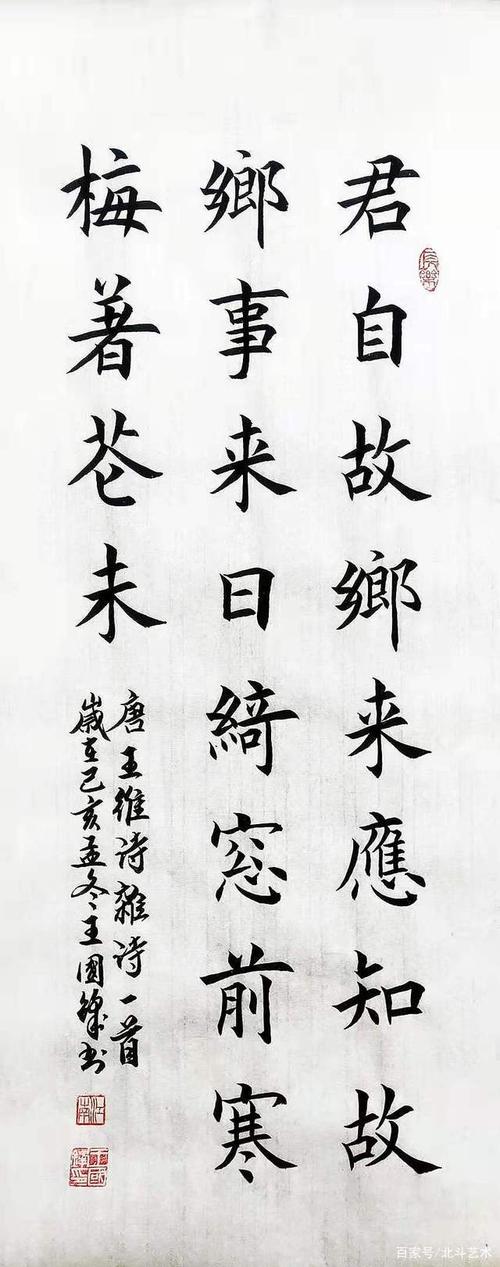 君自故鄉来應知故
鄉事来日綺窓前寒
梅著花未
唐王維诗雜诗一首
歲在己亥孟冬王國鎮书
百家号/北斗艺术